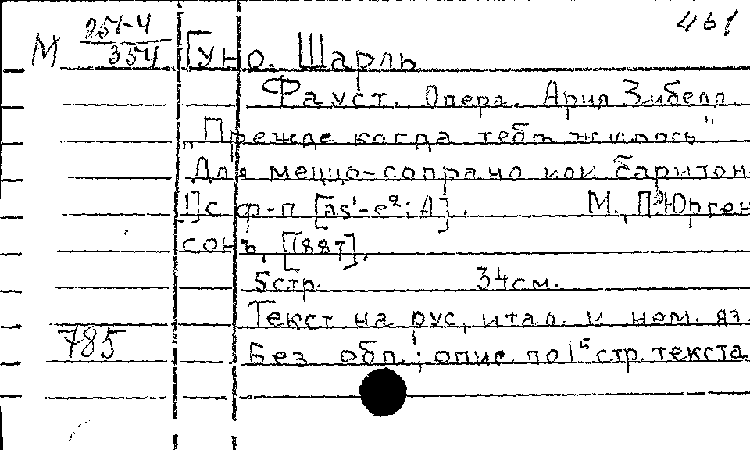 461
М 251-4
354
Гуно, Шарль
Фауст. Опера. Ария Зибеля
„Прежде когда тебъ жилось"
Для меццо-сопрано или баритон
[] с ф-п [as¹-e²; A]. М., П. Юрген
сонъ, [188?].
5 стр. 34 см.
Текст на рус, итал. и нем. яз.
785 Без обл.; опис по 1ой стр. текста